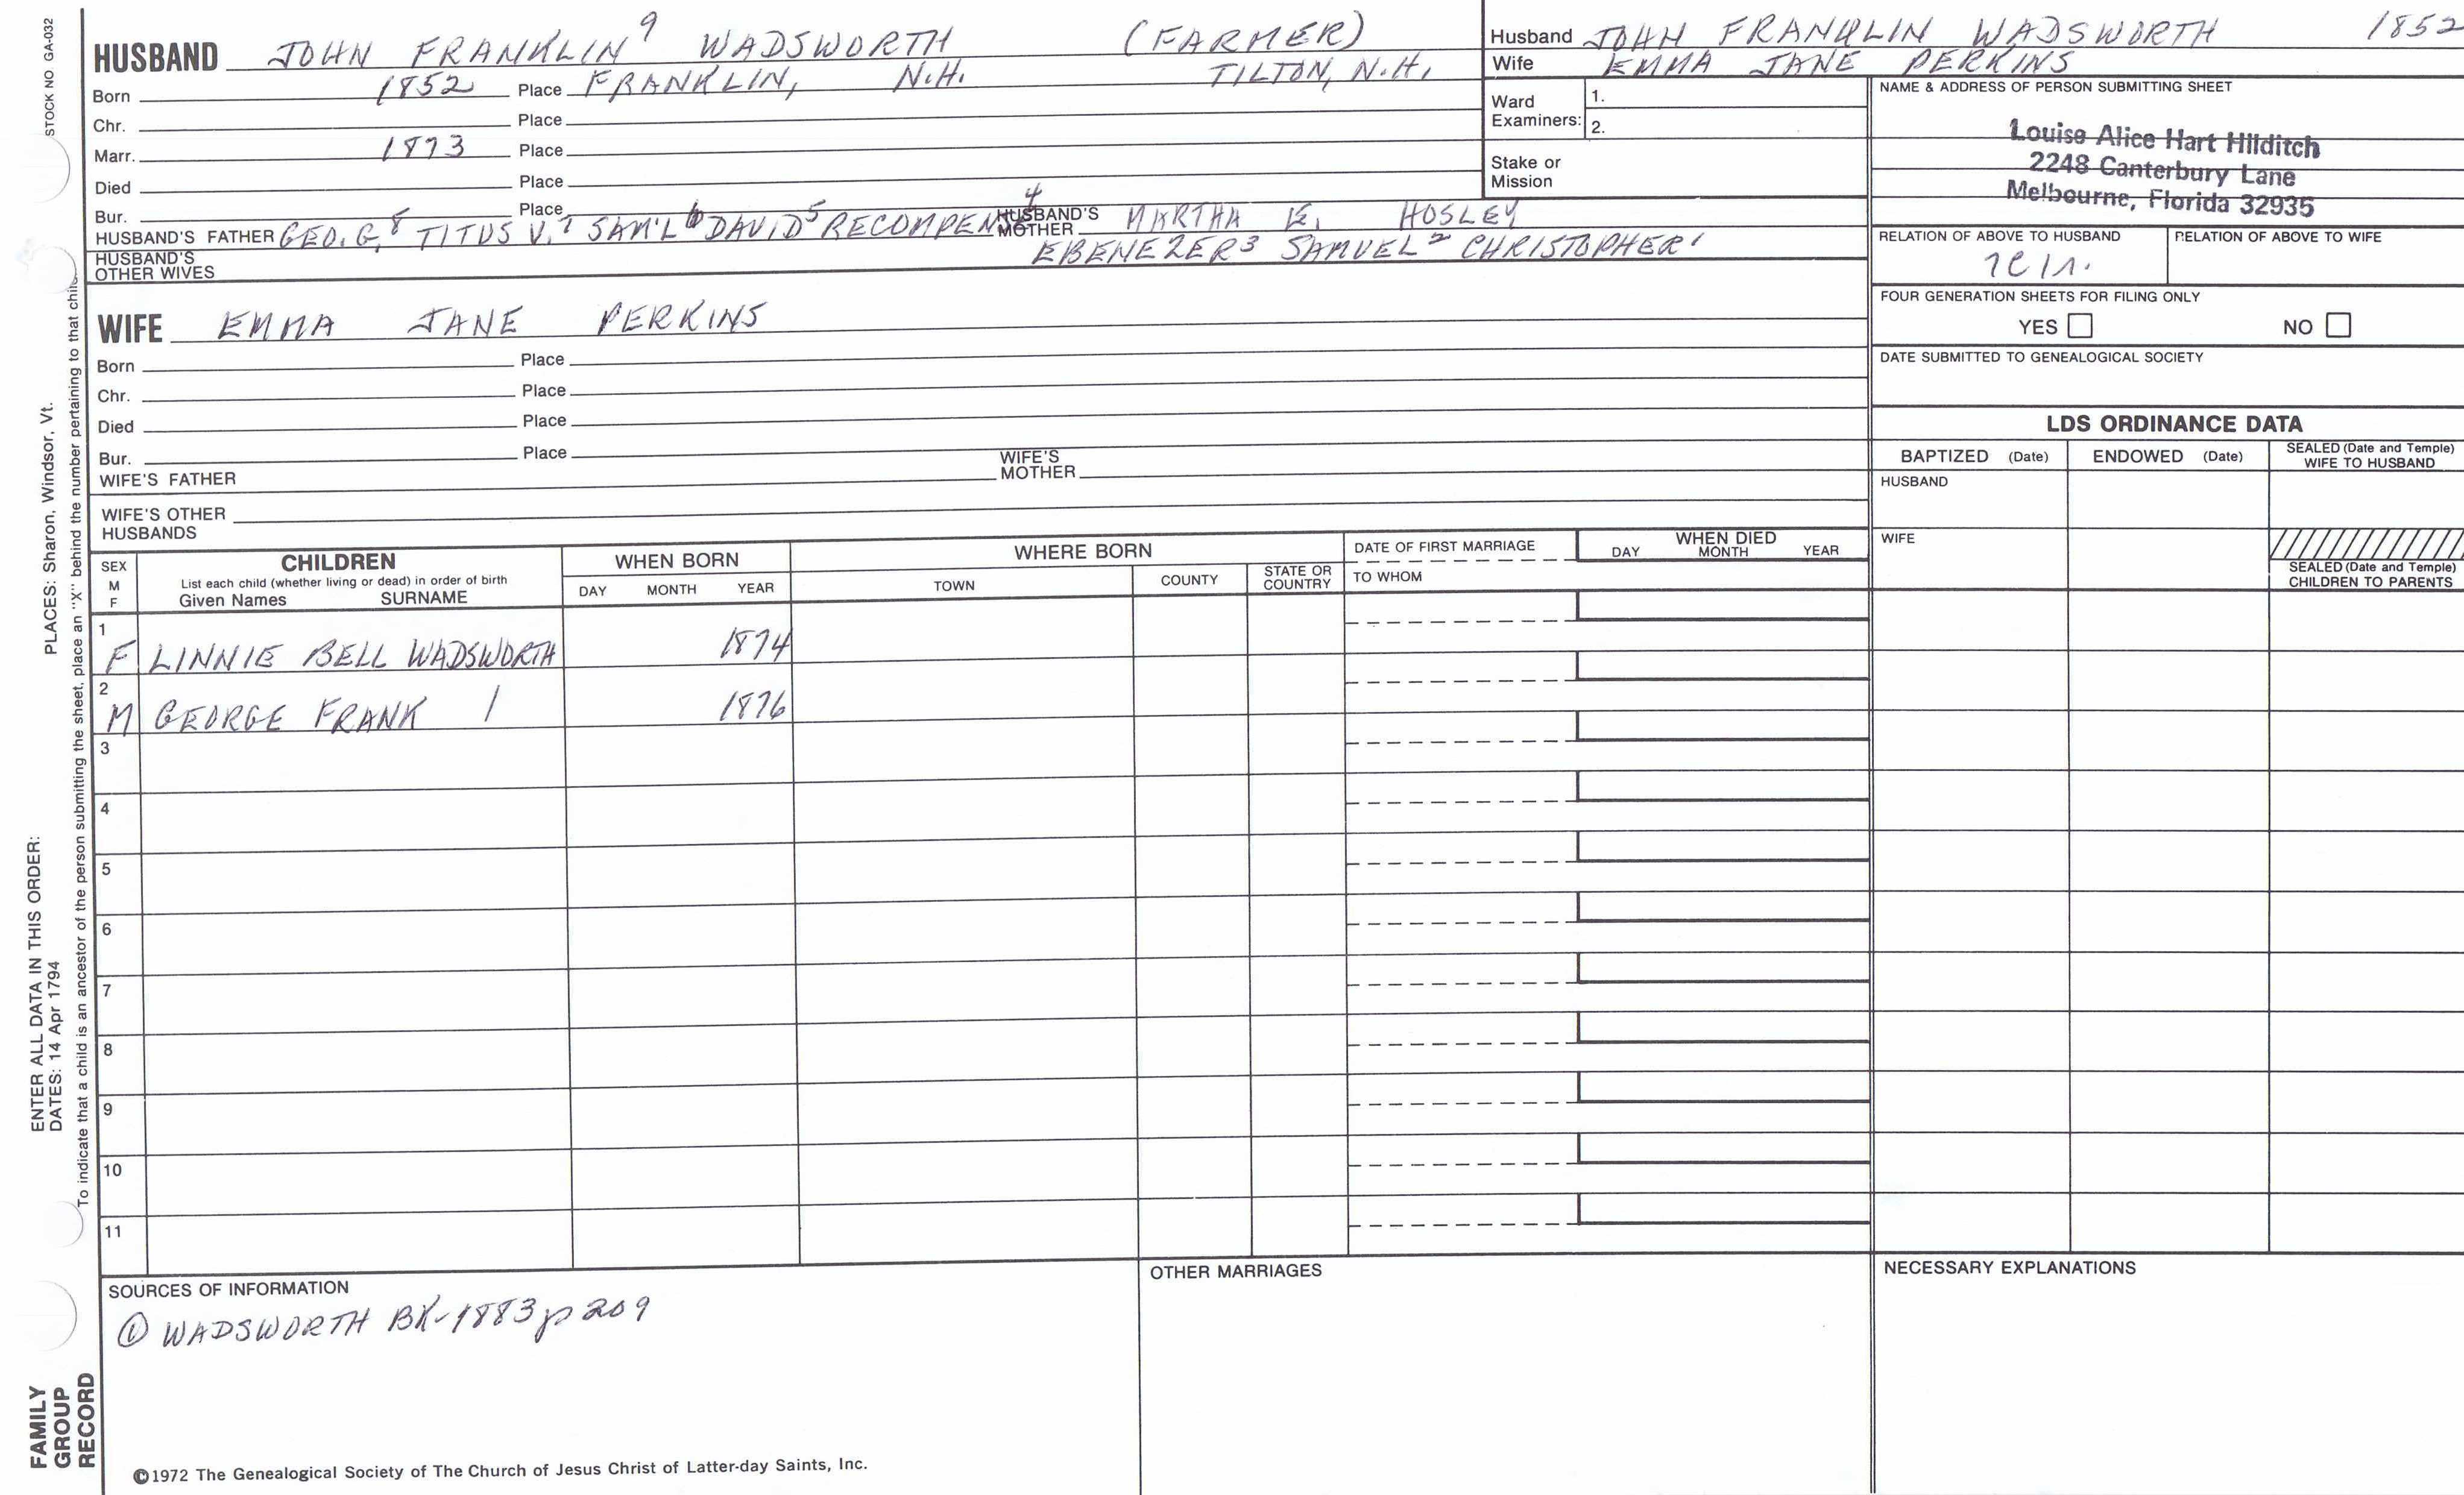 STOCK NO GA-032
PLACES: Sharon, Windsor, Vt.
ENTER ALL DATA IN THIS ORDER:
DATES: 14 Apr 1794
To indicate that a child is an ancestor of the person submitting the sheet, place an "X" behind the number pertaining to that
FAMILY
GROUP
RECORD
HUSBAND JOHN FRANKLIN 9 WADSWORTH (FARMER)
Born 1852 Place FRANKLIN, N.H. TILTON, N.H.
Chr. Place
Marr. 1873 Place
Died Place
Bur. Place
HUSBAND'S FATHER GEO. G. 8 TITUS V. 7 SAM'L 6 DAVID 5 RECOMPENSE 4 HUSBAND'S MOTHER MARTHA E. HOSLEY
HUSBAND'S OTHER WIVES EBENEZER 3 SAMUEL 2 CHRISTOPHER 1
WIFE EMMA JANE PERKINS
Born Place
Chr. Place
Died Place
Bur. Place
WIFE'S FATHER WIFE'S MOTHER
WIFE'S OTHER
HUSBANDS
Husband JOHN FRANKLIN WADSWORTH 1852
Wife EMMA JANE PERKINS
Ward Examiners: 1.
2.
Stake or
Mission
NAME & ADDRESS OF PERSON SUBMITTING SHEET
Louise Alice Hart Hilditch
2248 Canterbury Lane
Melbourne, Florida 32935
RELATION OF ABOVE TO HUSBAND RELATION OF ABOVE TO WIFE
FOUR GENERATION SHEETS FOR FILING ONLY
YES NO
DATE SUBMITTED TO GENEALOGICAL SOCIETY
LDS ORDINANCE DATA
BAPTIZED (Date) ENDOWED (Date) SEALED (Date and Temple) WIFE TO HUSBAND
HUSBAND
WIFE
SEALED (Date and Temple)
CHILDREN TO PARENTS
SEX
M
F
CHILDREN
List each child (whether living or dead) in order of birth
Given Names SURNAME
WHEN BORN
DAY MONTH YEAR
WHERE BORN
TOWN COUNTY STATE OR COUNTRY
DATE OF FIRST MARRIAGE
TO WHOM
WHEN DIED
DAY MONTH YEAR
1
F LINNIE BELL WADSWORTH 1874
2
M GEORGE FRANK / 1876
3
4
5
6
7
8
9
10
11
SOURCES OF INFORMATION
① WADSWORTH BK-1883 p 209
OTHER MARRIAGES
NECESSARY EXPLANATIONS
©1972 The Genealogical Society of The Church of Jesus Christ of Latter-day Saints, Inc.